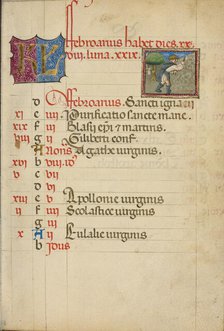 KL Febroanus habet dies xx
viii. luna. xxix.
d Februarius. Sancti ignacii
xi e iiii Purificatio sancte marie.
xix f iii Blasii epi & martiris.
viii g ii Giliberti conf.
A Non̄ Agathe virginis
xvi b viii id9
v c vii
d vi
xiii e v Apollonie virginis
ii f iiii Scolastice virginis
g iii
x A ii Eulalie virginis
b Idus